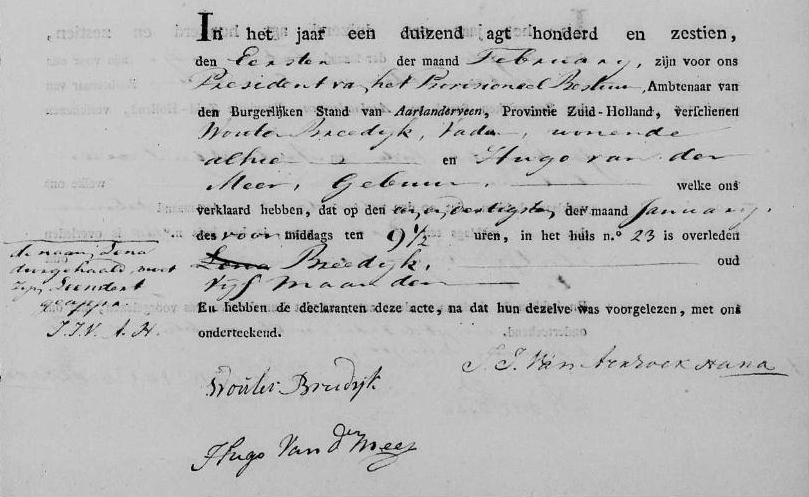 In het jaar een duizend agt honderd en zestien,
den Eersten der maand February, zijn voor ons
President van het Provisioneel Bestuur, Ambtenaar van
den Burgerlijken Stand van Aarlanderveen, Provintie Zuid-Holland, verschenen
Wouter Breedijk, Vader, wonende
alhier en Hugo van der
Meer, Gebuur, welke ons
verklaard hebben, dat op den een en dertigsten der maand January,
des voor middags ten 9½ uren, in het huis n.º 23 is overleden
Lena Breedijk, oud
Vijf Maanden
En hebben de declaranten deze acte, na dat hun dezelve was voorgelezen, met ons
onderteekend.
de naam Lena
doorgehaald, moet
zijn
J. J. V. A. H.
J. J. Van
Wouter Breedijk
Hugo Van der Meer